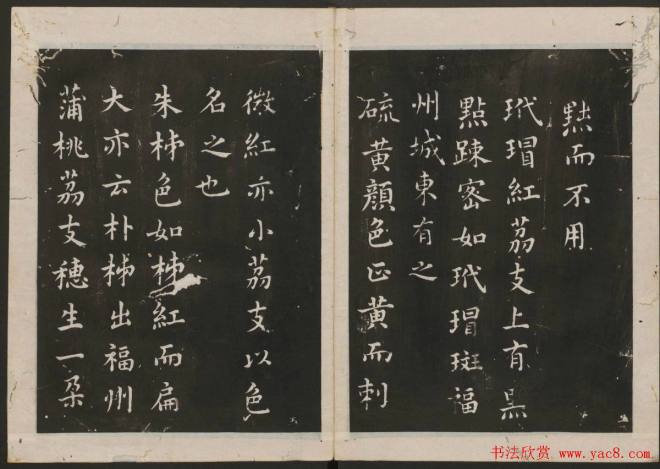 點而不用
玳瑁紅茘支上有黒
點踈宻如玳瑁斑福
州城東有之
硫黄顔色正黄而刺
微紅亦小茘支以色
名之也
朱柹色如柹紅而扁
大亦云朴柹出福州
蒲桃茘支穗生一朶
书法欣赏 www.yac8.com